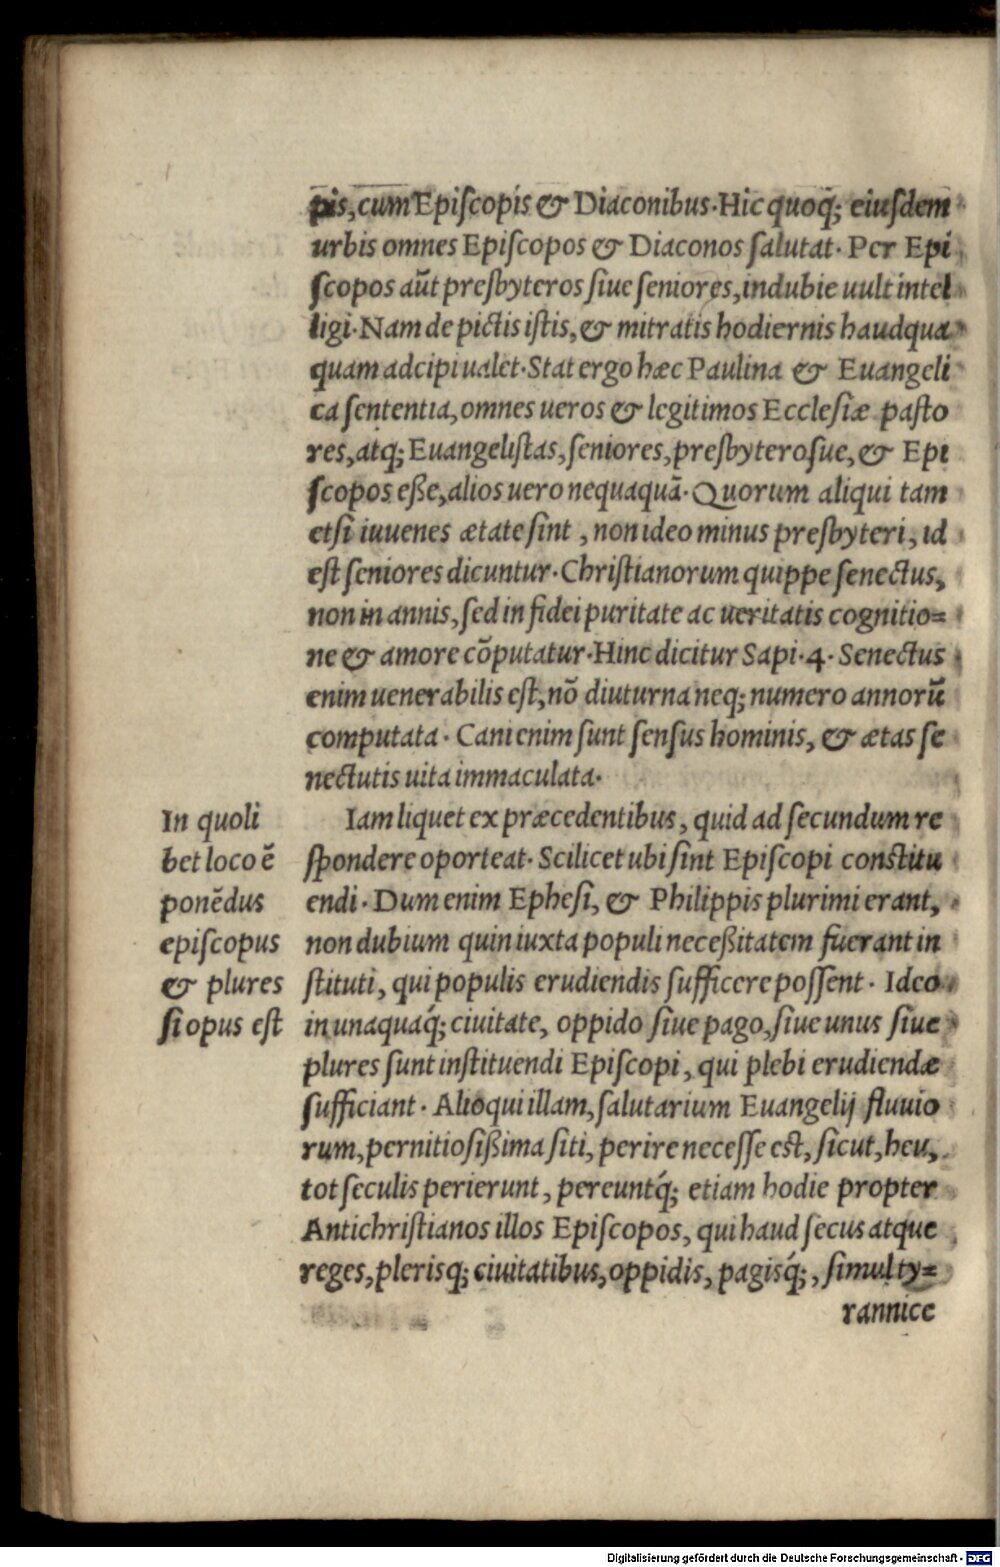 pis, cum Episcopis & Diaconibus. Hic quoq́; eiusdem
urbis omnes Episcopos & Diaconos salutat. Per Epi
scopos aūt presbyteros siue seniores, indubie uult intel
ligi. Nam de pictis istis, & mitratis hodiernis haudqua
quam adcipi ualet. Stat ergo hæc Paulina & Euangeli
ca sententia, omnes ueros & legitimos Ecclesiæ pasto
res, atq; Euangelistas, seniores, presbyterosue, & Epi
scopos eße, alios uero nequaquā. Quorum aliqui tam
etsi iuuenes ætate sint, non ideo minus presbyteri, id
est seniores dicuntur. Christianorum quippe senectus,
non in annis, sed in fidei puritate ac ueritatis cognitio=
ne & amore cōputatur. Hinc dicitur Sapi. 4. Senectus
enim uenerabilis est, nō diuturna neq; numero annorū
computata. Cani enim sunt sensus hominis, & ætas se
nectutis uita immaculata.
In quoli
bet loco ē
ponēdus
episcopus
& plures
si opus est
Iam liquet ex præcedentibus, quid ad secundum re
spondere oporteat. Scilicet ubi sint Episcopi constitu
endi. Dum enim Ephesi, & Philippis plurimi erant,
non dubium quin iuxta populi neceßitatem fuerant in
stituti, qui populis erudiendis sufficere possent. Ideo
in unaquaq́; ciuitate, oppido siue pago, siue unus siue
plures sunt instituendi Episcopi, qui plebi erudiendæ
sufficiant. Alioqui illam, salutarium Euangelij fluuio
rum, pernitiosißima siti, perire necesse est, sicut, heu,
tot seculis perierunt, pereuntq́; etiam hodie propter
Antichristianos illos Episcopos, qui haud secus atque
reges, plerisq; ciuitatibus, oppidis, pagisq́;, simul ty=
rannice
Digitalisierung gefördert durch die Deutsche Forschungsgemeinschaft - DFG